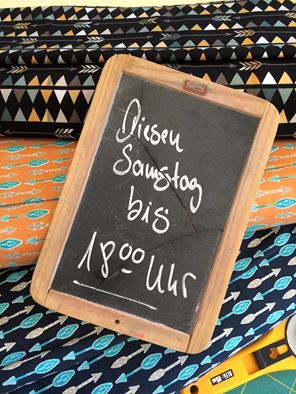 Diesen
Samstag
bis
18⁰⁰ Uhr